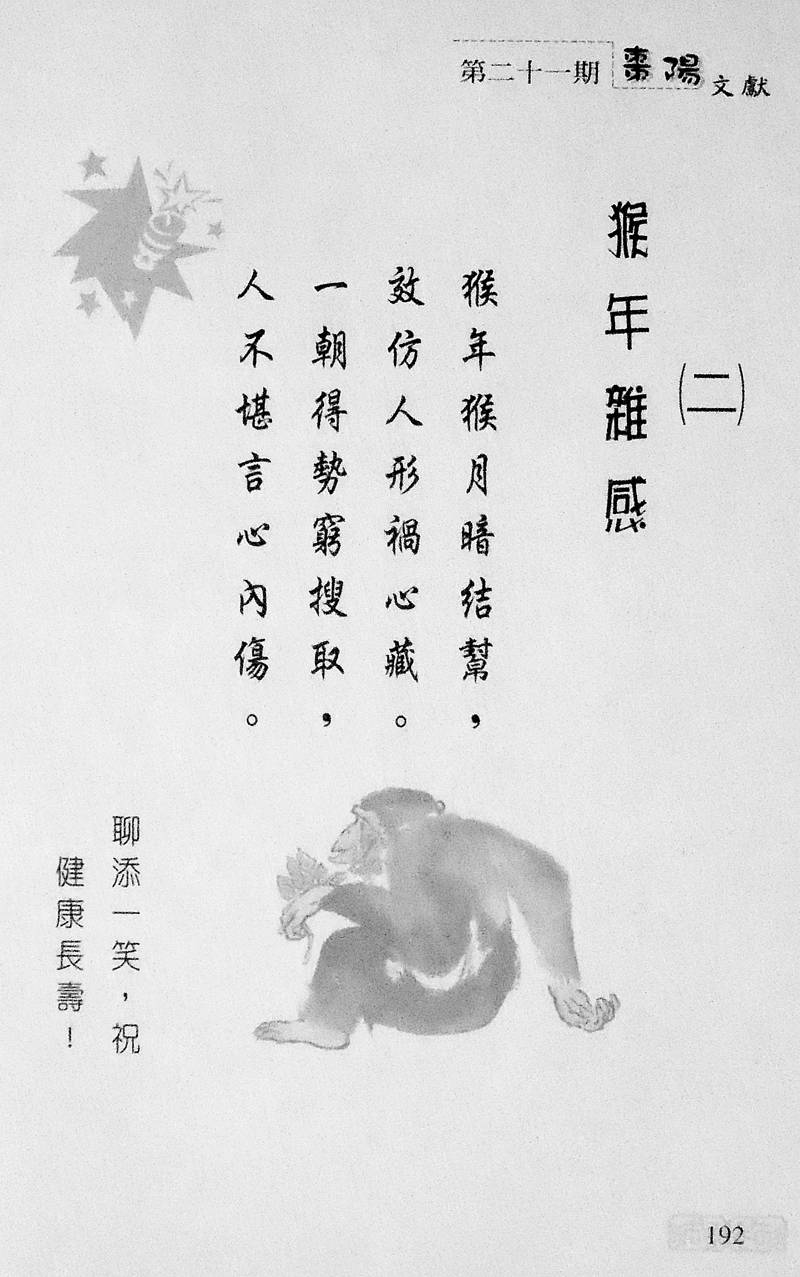 第二十一期 棗陽文獻
(二)
猴年雜感
猴年猴月暗結幫，
效仿人形禍心藏。
一朝得勢窮搜取，
人不堪言心內傷。
聊添一笑，祝
健康長壽！
192